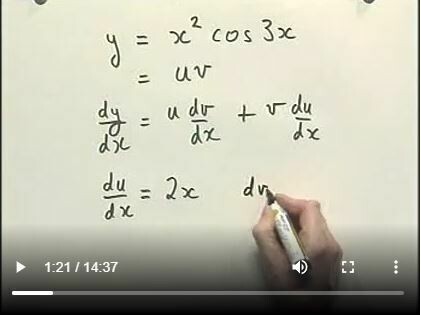 y = x² cos 3x
= uv
dy/dx = u dv/dx + v du/dx
du/dx = 2x dv
1:21 / 14:37